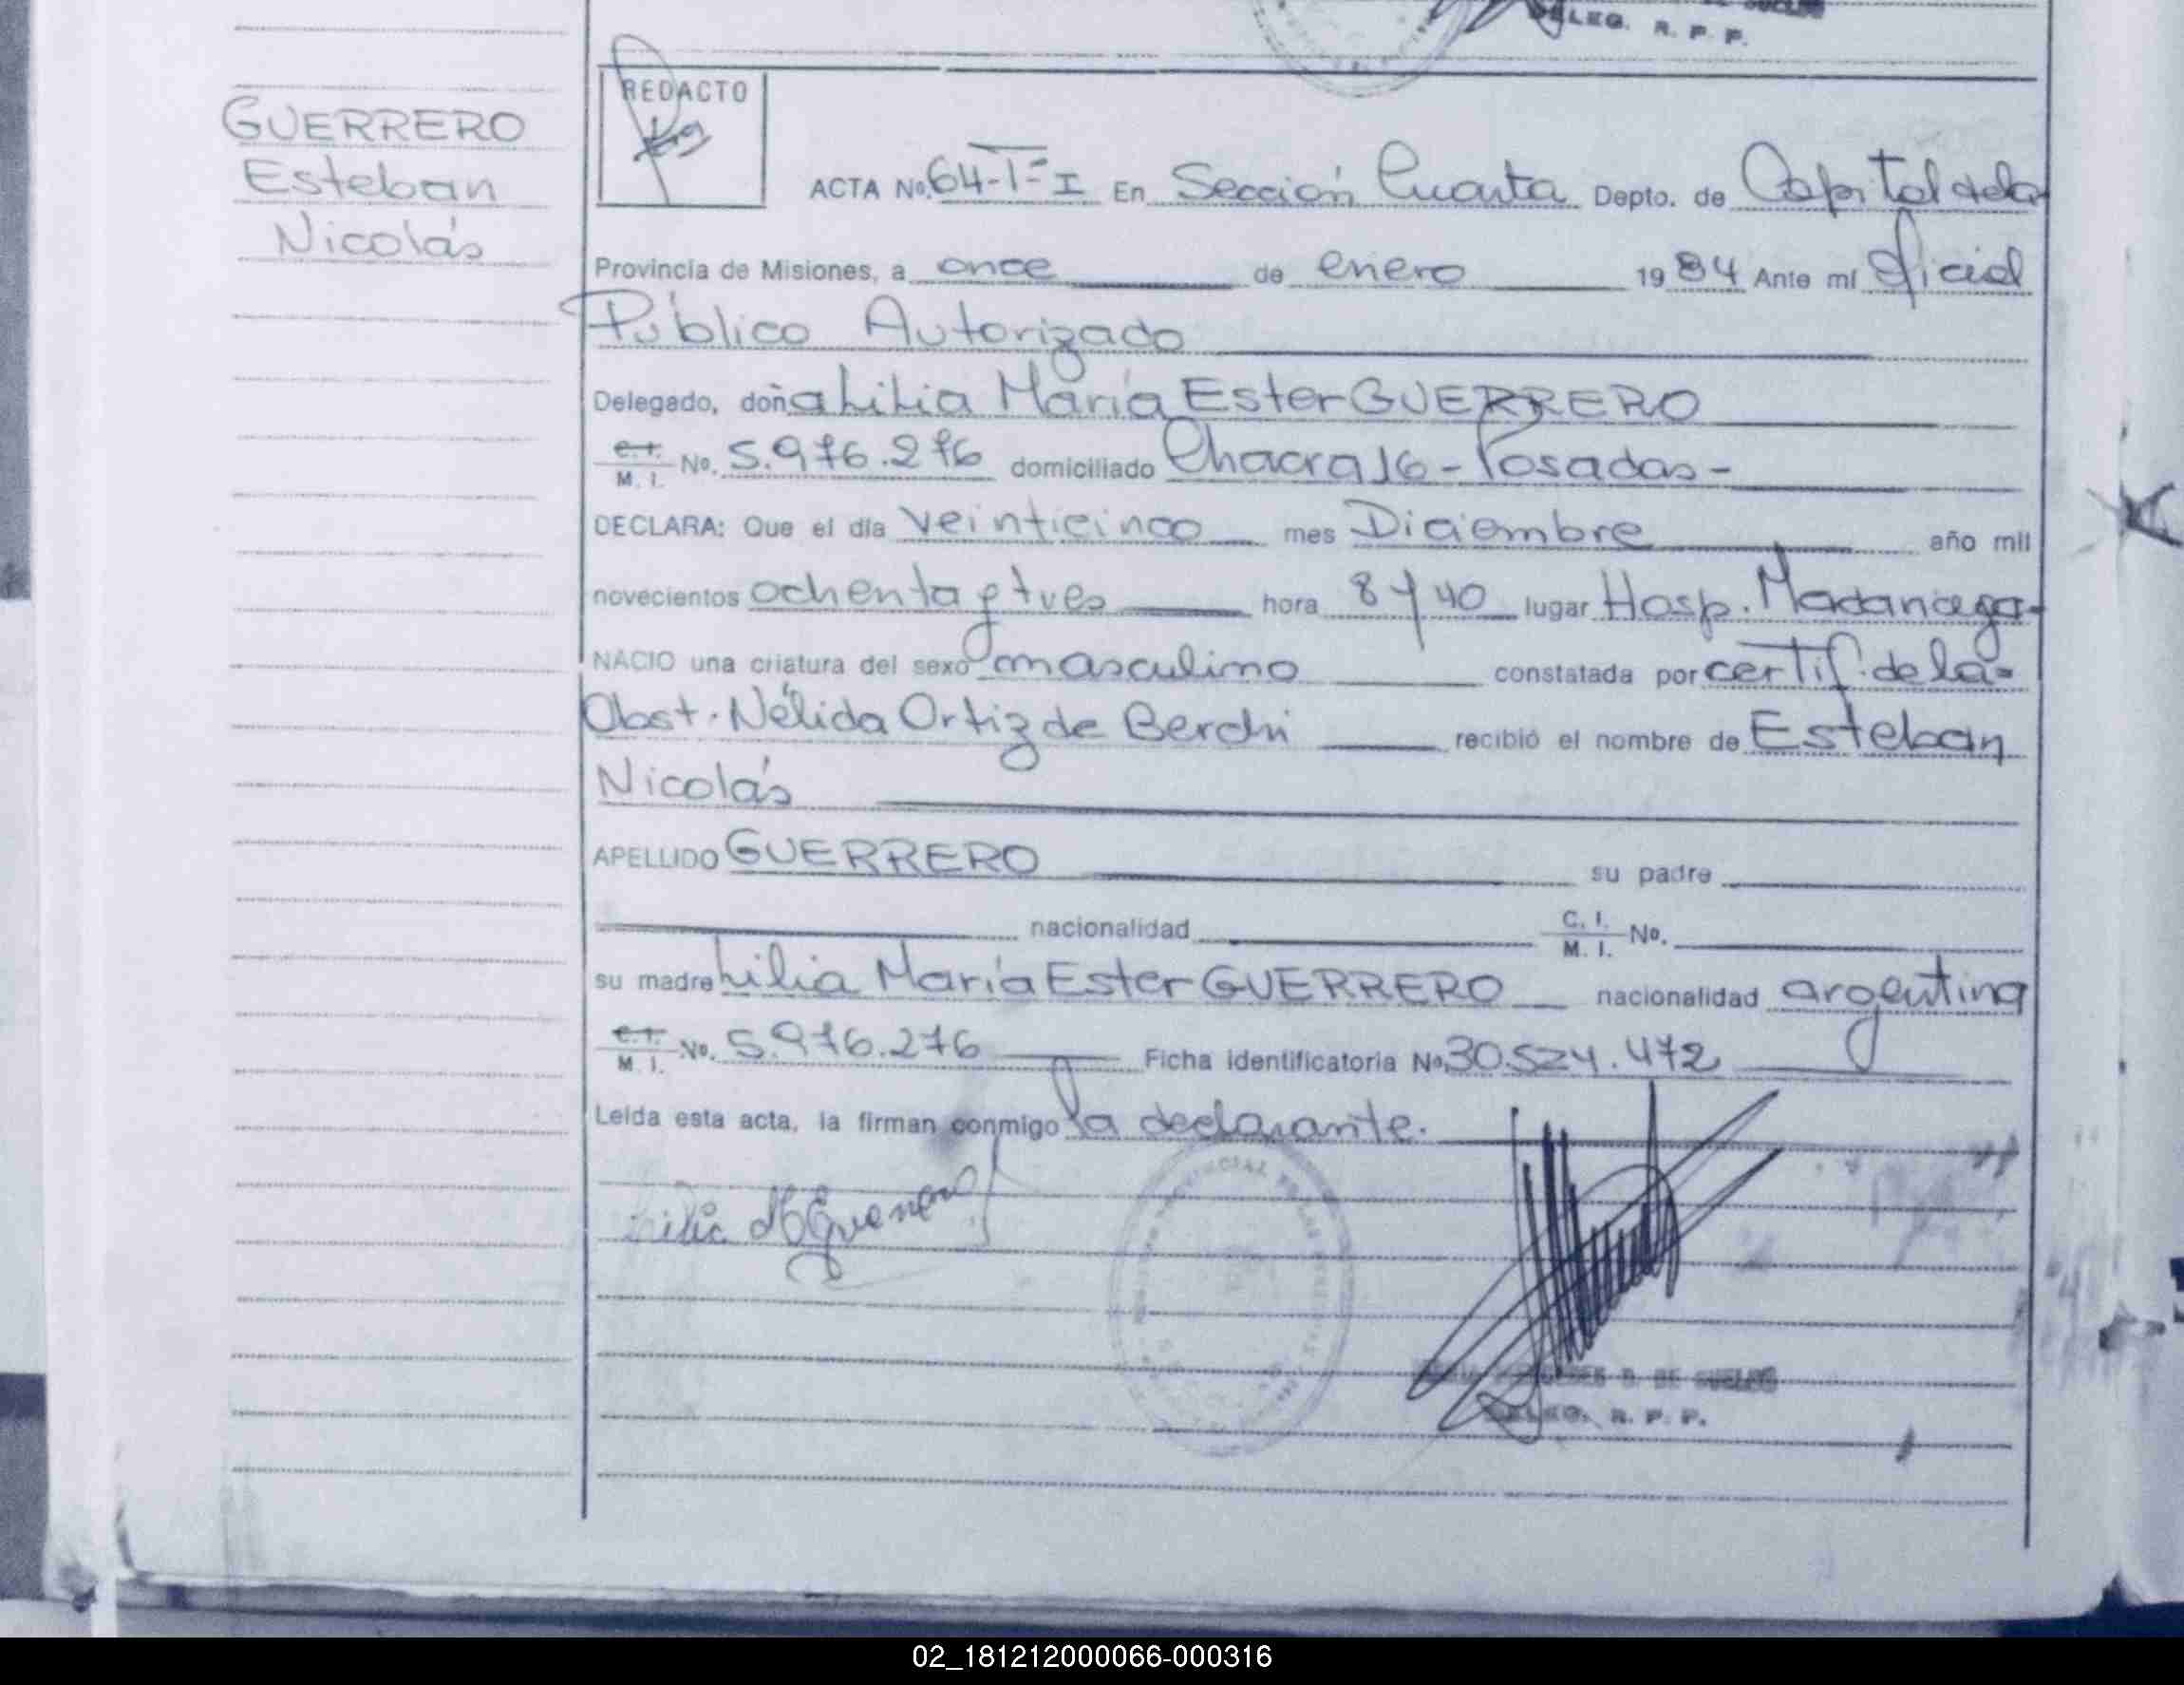 DELEG. R. P. P.
GUERRERO
Esteban
Nicolás
REDACTO
ACTA No. 64-Tº-I En Sección Cuarta Depto. de Capital de la
Provincia de Misiones, a once de enero 1984 Ante mí Oficial
Público Autorizado
Delegado, doña Lilia María Ester GUERRERO
C.I. M. I. No. 5.976.276 domiciliado Chacra 16 - Posadas -
DECLARA: Que el día veinticinco mes Diciembre año mil
novecientos ochenta y tres hora 8 y 40 lugar Hosp. Madariaga
NACIO una criatura del sexo masculino constatada por certif. de la
Obst. Nélida Ortiz de Berchi recibió el nombre de Esteban
Nicolás
APELLIDO GUERRERO su padre
nacionalidad C. I. M. I. No.
su madre Lilia María Ester GUERRERO nacionalidad argentina
C.I. M. I. No. 5.976.276 Ficha identificatoria No. 30.524.472
Leída esta acta, la firman conmigo la declarante.
Lilia M E Guerrero
DELEG. R. P. P.
02_181212000066-000316